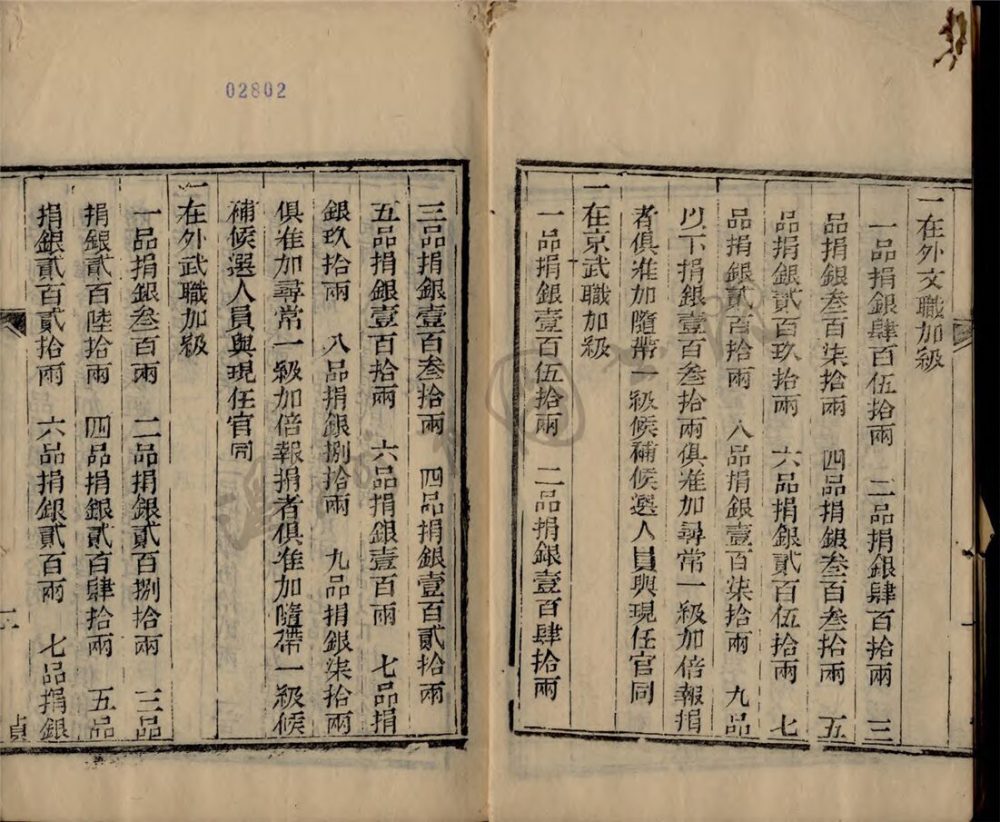 02802
一在外文職加級
一品捐銀肆百伍拾兩　二品捐銀肆百拾兩　三
品捐銀叁百柒拾兩　四品捐銀叁百叁拾兩　五
品捐銀貳百玖拾兩　六品捐銀貳百伍拾兩　七
品捐銀貳百拾兩　八品捐銀壹百柒拾兩　九品
以下捐銀壹百叁拾兩俱准加尋常一級加倍報捐
者俱准加隨帶一級候補候選人員與現任官同
一在京武職加級
一品捐銀壹百伍拾兩　二品捐銀壹百肆拾兩
三品捐銀壹百叁拾兩　四品捐銀壹百貳拾兩
五品捐銀壹百拾兩　六品捐銀壹百兩　七品捐
銀玖拾兩　八品捐銀捌拾兩　九品捐銀柒拾兩
俱准加尋常一級加倍報捐者俱准加隨帶一級候
補候選人員與現任官同
一在外武職加級
一品捐銀叁百兩　二品捐銀貳百捌拾兩　三品
捐銀貳百陸拾兩　四品捐銀貳百肆拾兩　五品
捐銀貳百貳拾兩　六品捐銀貳百兩　七品捐銀